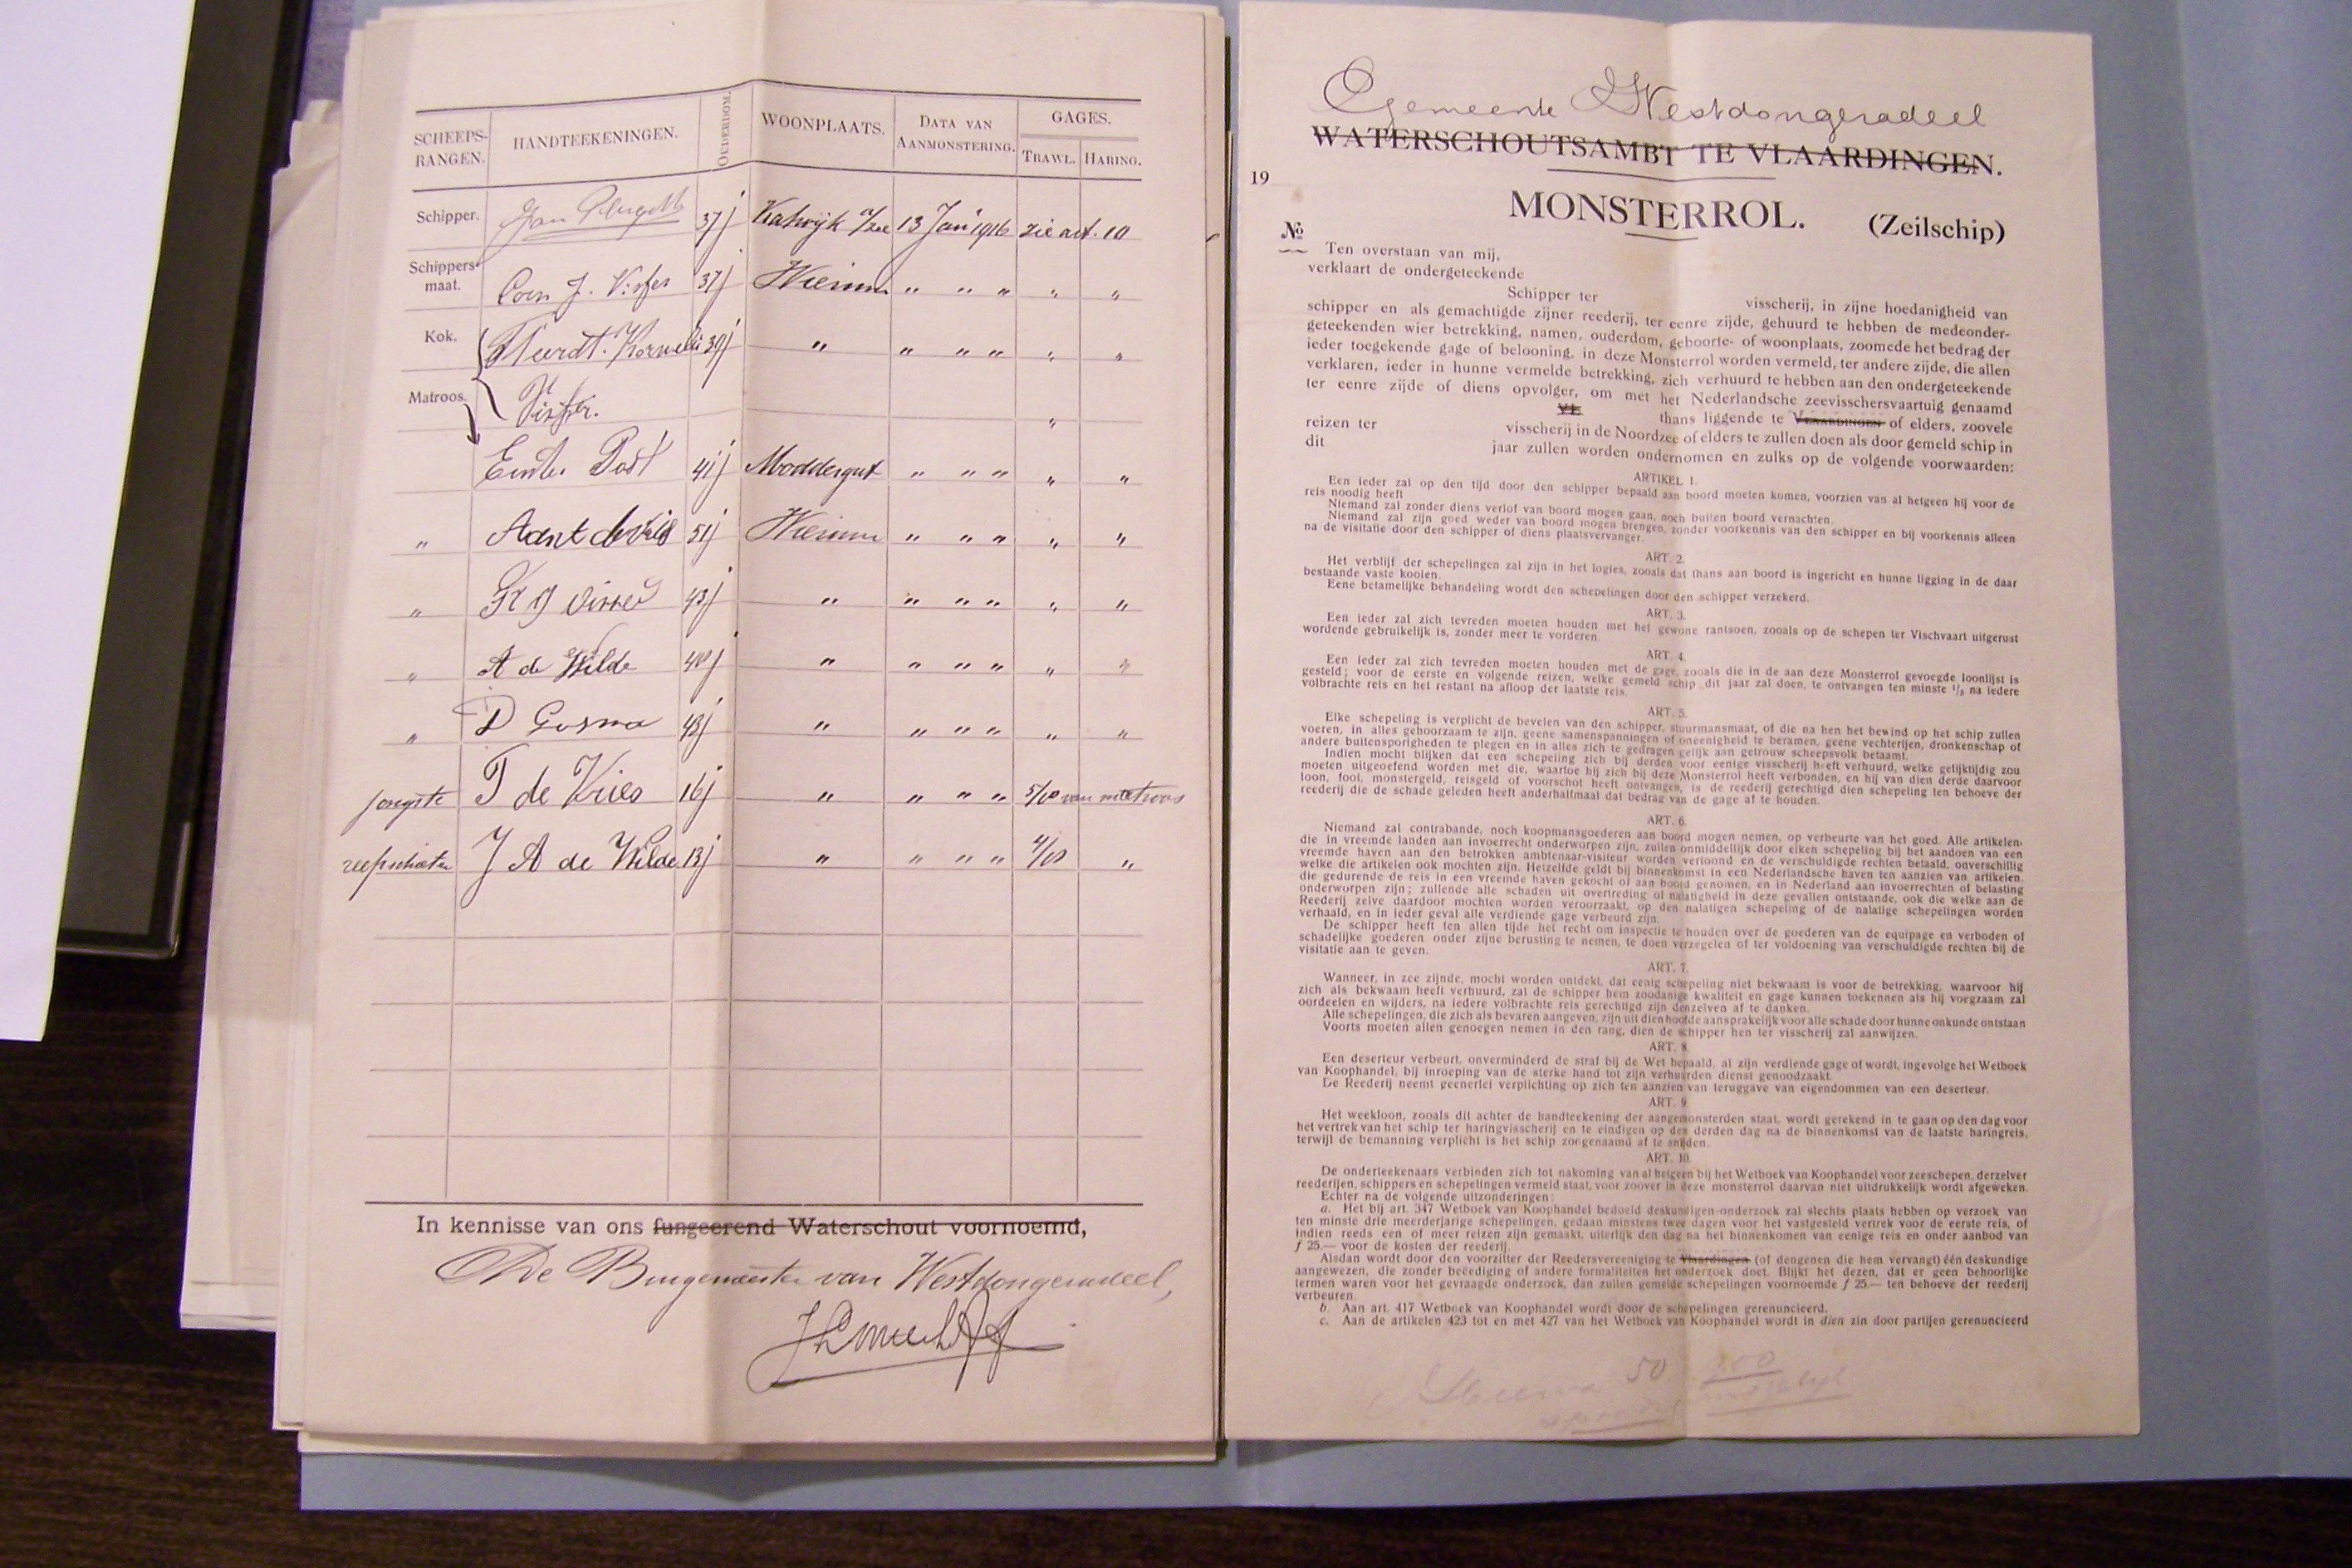 SCHEEPS-RANGEN. HANDTEEKENINGEN. OUDERDOM. WOONPLAATS. DATA VAN AANMONSTERING. GAGES. TRAWL. HARING.
Schipper. Jan 37j Katwijk a/zee 13 Jan 1916 zie art. 10
Schippers-maat. Corn J. Visser 37j Wierum " " " " "
Kok. Tjeerdt. Kornelis 39j " " " " " "
Matroos. Visser. "
Post 41j Moddergat " " " " "
" de Vries 51j Wierum " " " " "
" Visser 43j " " " " " "
" A de Wilde " " " " " "
" D Gosma 43j " " " " " "
jongste T de Vries 16j " " " " 5/10 van matroos
reepschieter J A de Wilde 13j " " " " 4/10 "
In kennisse van ons fungeerend Waterschout voornoemd,
De Burgemeester van Westdongeradeel,
Gemeente Westdongeradeel
WATERSCHOUTSAMBT TE VLAARDINGEN.
19
MONSTERROL. (Zeilschip)
No
Ten overstaan van mij,
verklaart de ondergeteekende
Schipper ter visscherij, in zijne hoedanigheid van
schipper en als gemachtigde zijner reederij, ter eenre zijde, gehuurd te hebben de medeonder-
geteekenden wier betrekking, namen, ouderdom, geboorte- of woonplaats, zoomede het bedrag der
ieder toegekende gage of belooning, in deze Monsterrol worden vermeld, ter andere zijde, die allen
verklaren, ieder in hunne vermelde betrekking, zich verhuurd te hebben aan den ondergeteekende
ter eenre zijde of diens opvolger, om met het Nederlandsche zeevisschersvaartuig genaamd
VL thans liggende te VLAARDINGEN of elders, zoovele
reizen ter visscherij in de Noordzee of elders te zullen doen als door gemeld schip in
dit jaar zullen worden ondernomen en zulks op de volgende voorwaarden:
ARTIKEL 1.
Een ieder zal op den tijd door den schipper bepaald aan boord moeten komen, voorzien van al hetgeen hij voor de
reis noodig heeft
Niemand zal zonder diens verlof van boord mogen gaan, noch buiten boord vernachten.
Niemand zal zijn goed weder van boord mogen brengen, zonder voorkennis van den schipper en bij voorkennis alleen
na de visitatie door den schipper of diens plaatsvervanger.
ART. 2.
Het verblijf der schepelingen zal zijn in het logies, zooals dat thans aan boord is ingericht en hunne ligging in de daar
bestaande vaste kooien.
Eene betamelijke behandeling wordt den schepelingen door den schipper verzekerd.
ART. 3.
Een ieder zal zich tevreden moeten houden met het gewone rantsoen, zooals op de schepen ter Vischvaart uitgerust
wordende gebruikelijk is, zonder meer te vorderen.
ART. 4.
Een ieder zal zich tevreden moeten houden met de gage, zooals die in de aan deze Monsterrol gevoegde loonlijst is
gesteld; voor de eerste en volgende reizen, welke gemeld schip dit jaar zal doen, te ontvangen ten minste 1/3 na iedere
volbrachte reis en het restant na afloop der laatste reis.
ART. 5.
Elke schepeling is verplicht de bevelen van den schipper, stuurmansmaat, of die na hen het bewind op het schip zullen
voeren, in alles gehoorzaam te zijn, geene samenspanningen of oneenigheid te beramen, geene vechterijen, dronkenschap of
andere buitensporigheden te plegen en in alles zich te gedragen gelijk aan getrouw scheepsvolk betaamt.
Indien mocht blijken dat een schepeling zich bij derden voor eenige visscherij heeft verhuurd, welke gelijktijdig zou
moeten uitgeoefend worden met die, waartoe hij zich bij deze Monsterrol heeft verbonden, en hij van dien derde daarvoor
loon, fooi, monstergeld, reisgeld of voorschot heeft ontvangen, is de reederij gerechtigd dien schepeling ten behoeve der
reederij die de schade geleden heeft anderhalfmaal dat bedrag van de gage af te houden.
ART. 6.
Niemand zal contrabande, noch koopmansgoederen aan boord mogen nemen, op verbeurte van het goed. Alle artikelen,
die in vreemde landen aan invoerrecht onderworpen zijn, zullen onmiddellijk door elken schepeling bij het aandoen van een
vreemde haven aan den betrokken ambtenaar-visiteur worden vertoond en de verschuldigde rechten betaald, onverschillig
welke die artikelen ook mochten zijn. Hetzelfde geldt bij binnenkomst in een Nederlandsche haven ten aanzien van artikelen,
die gedurende de reis in een vreemde haven gekocht of aan boord genomen, en in Nederland aan invoerrechten of belasting
onderworpen zijn; zullende alle schaden uit overtreding of nalatigheid in deze gevallen ontstaande, ook die welke aan de
Reederij zelve daardoor mochten worden veroorzaakt, op den nalatigen schepeling of de nalatige schepelingen worden
verhaald, en in ieder geval alle verdiende gage verbeurd zijn.
De schipper heeft ten allen tijde het recht om inspectie te houden over de goederen van de equipage en verboden of
schadelijke goederen onder zijne berusting te nemen, te doen verzegelen of ter voldoening van verschuldigde rechten bij de
visitatie aan te geven.
ART. 7.
Wanneer, in zee zijnde, mocht worden ontdekt, dat eenig schepeling niet bekwaam is voor de betrekking, waarvoor hij
zich als bekwaam heeft verhuurd, zal de schipper hem zoodanige kwaliteit en gage kunnen toekennen als hij voegzaam zal
oordeelen en wijders, na iedere volbrachte reis gerechtigd zijn denzelven af te danken.
Alle schepelingen, die zich als bevaren aangeven, zijn uit dien hoofde aansprakelijk voor alle schade door hunne onkunde ontstaan
Voorts moeten allen genoegen nemen in den rang, dien de schipper hen ter visscherij zal aanwijzen.
ART. 8.
Een deserteur verbeurt, onverminderd de straf bij de Wet bepaald, al zijn verdiende gage of wordt, ingevolge het Wetboek
van Koophandel, bij inroeping van de sterke hand tot zijn verhuurden dienst genoodzaakt.
De Reederij neemt geenerlei verplichting op zich ten aanzien van teruggave van eigendommen van een deserteur.
ART. 9
Het weekloon, zooals dit achter de handteekening der aangemonsterden staat, wordt gerekend in te gaan op den dag voor
het vertrek van het schip ter haringvisscherij en te eindigen op den derden dag na de binnenkomst van de laatste haringreis,
terwijl de bemanning verplicht is het schip zoogenaamd af te snijden.
ART. 10.
De onderteekenaars verbinden zich tot nakoming van al hetgeen bij het Wetboek van Koophandel voor zeeschepen, derzelver
reederijen, schippers en schepelingen vermeld staat, voor zoover in deze monsterrol daarvan niet uitdrukkelijk wordt afgeweken.
Echter na de volgende uitzonderingen:
a. Het bij art. 347 Wetboek van Koophandel bedoeld deskundigen-onderzoek zal slechts plaats hebben op verzoek van
ten minste drie meerderjarige schepelingen, gedaan minstens twee dagen voor het vastgesteld vertrek voor de eerste reis, of
indien reeds een of meer reizen zijn gemaakt, uiterlijk den dag na het binnenkomen van eenige reis en onder aanbod van
f 25.— voor de kosten der reederij.
Alsdan wordt door den voorzitter der Reedersvereeniging te Vlaardingen (of dengenen die hem vervangt) één deskundige
aangewezen, die zonder beëediging of andere formaliteiten het onderzoek doet. Blijkt het dezen, dat er geen behoorlijke
termen waren voor het gevraagde onderzoek, dan zullen gemelde schepelingen voornoemde f 25.— ten behoeve der reederij
verbeuren.
b. Aan art. 417 Wetboek van Koophandel wordt door de schepelingen gerenuncieerd.
c. Aan de artikelen 423 tot en met 427 van het Wetboek van Koophandel wordt in dien zin door partijen gerenuncieerd
50